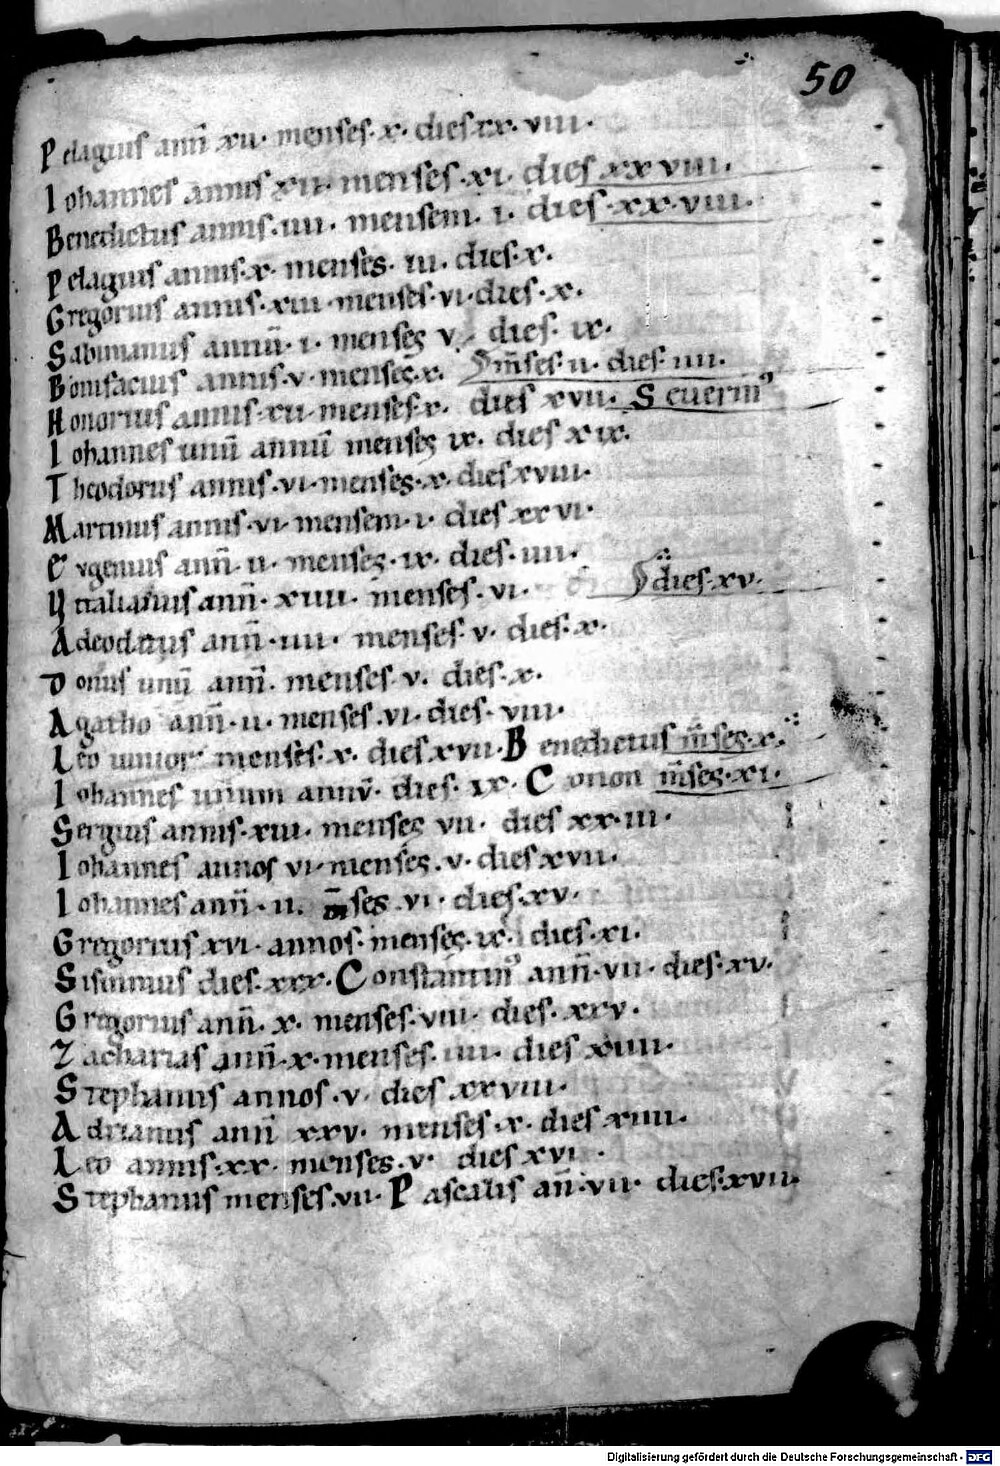 50
Pelagius ann̄ xii· menses·x· dies xx·viii·
Iohannes annis xii· menses·xi· dies xxviii·
Benedictus annis·iiii· mensem·i· dies·xx·viii·
Pelagius annis·x· menses·iii· dies·x·
Gregorius annis·xiii·menses·vi·dies·x·
Sabinianus annū·i· menses v· dies·ix·
Bonifacius annis·v·menses·x· m̄ses·ii· dies·iiii·
Honorius annis·xii·menses·x· dies xvii· Seuerinꝰ
Iohannes unū annū menses ix· dies xix·
Theodorus annis·vi·menses·x·dies xviii·
Martinus annis·vi·mensem·i· dies xxvi·
Eugenius ann̄·ii· menses·ix· dies·iiii·
Vitalianus ann̄·xiiii· menses·vi· dies·xv·
Adeodatus ann̄·iiii· menses·v· dies·x·
Donus unū ann̄· menses·v· dies·x·
Agatho ann̄·ii· menses·vi·dies·viii·
Leo iunior menses·x· dies xvii·Benedictus m̄ses·x·
Iohannes unum annū· dies·ix· Conon m̄ses·xi·
Sergius annis·xiii· menses vii· dies xx·iii·
Iohannes annos vi·menses·v·dies xvii·
Iohannes ann̄·ii· m̄ses·vi·dies·xv·
Gregorius xvi·annos·menses·ix· dies·xi·
Sisinnius dies·xxx·Constantinꝰ ann̄·vii·dies·xv·
Gregorius ann̄·x·menses·viii·dies·xxv·
Zacharias ann̄·x·menses·iiii· dies xiiii·
Stephanus annos·v· dies xxviii·
Adrianus ann̄ xxv·menses·x·dies xiiii·
Leo annis·xx·menses·v· dies xvi·
Stephanus menses·vii·Pascalis an̄·vii· dies·xvii·
Digitalisierung gefördert durch die Deutsche Forschungsgemeinschaft - DFG